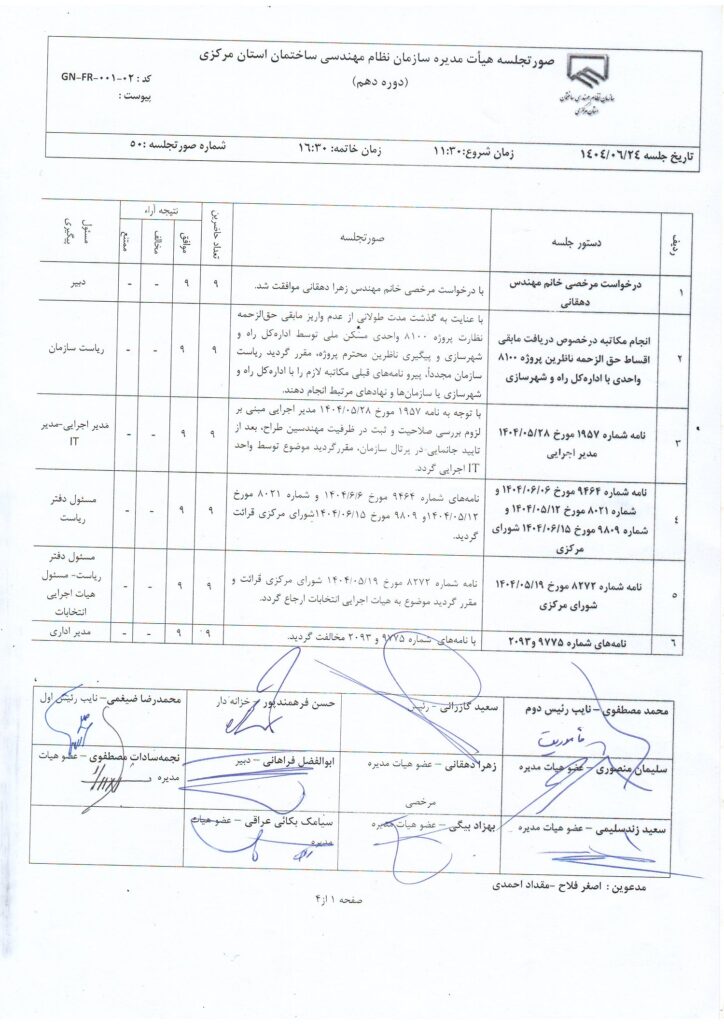 صورتجلسه هیأت مدیره سازمان نظام مهندسی ساختمان استان مرکزی
(دوره دهم)
کد : GN-FR-۰۰۱-۰۲
پیوست :
سازمان نظام مهندسی ساختمان
استان مرکزی
تاریخ جلسه ۱۴۰۴/۰۶/۲۴
زمان شروع:۱۱:۳۰
زمان خاتمه: ۱۶:۳۰
شماره صورتجلسه :۵۰
ردیف
دستور جلسه
صورتجلسه
تعداد حاضرین
نتیجه آراء
موافق
مخالف
ممتنع
مسئول پیگیری
۱
درخواست مرخصی خانم مهندس
دهقانی
با درخواست مرخصی خانم مهندس زهرا دهقانی موافقت شد.
۹
۹
-
-
دبیر
۲
انجام مکاتبه درخصوص دریافت مابقی
اقساط حق الزحمه ناظرین پروژه ۸۱۰۰
واحدی با اداره‌کل راه و شهرسازی
با عنایت به گذشت مدت طولانی از عدم واریز مابقی حق‌الزحمه
نظارت پروژه ۸۱۰۰ واحدی مسکن ملی توسط اداره‌کل راه و
شهرسازی و پیگیری ناظرین محترم پروژه، مقرر گردید ریاست
سازمان مجدداً، پیرو نامه‌های قبلی مکاتبه لازم را با اداره‌کل راه و
شهرسازی یا سازمان‌ها و نهادهای مرتبط انجام دهند.
۹
۹
-
-
ریاست سازمان
۳
نامه شماره ۱۹۵۷ مورخ ۱۴۰۴/۰۵/۲۸
مدیر اجرایی
با توجه به نامه ۱۹۵۷ مورخ ۱۴۰۴/۰۵/۲۸ مدیر اجرایی مبنی بر
لزوم بررسی صلاحیت و ثبت در ظرفیت مهندسین طراح، بعد از
تایید جانمایی در پرتال سازمان، مقررگردید موضوع توسط واحد
IT اجرایی گردد.
۹
۹
-
-
مدیر اجرایی-مدیر
IT
۴
نامه شماره ۹۴۶۴ مورخ ۱۴۰۴/۰۶/۰۶ و
شماره ۸۰۲۱ مورخ ۱۴۰۴/۰۵/۱۲ و
شماره ۹۸۰۹ مورخ ۱۴۰۴/۰۶/۱۵ شورای
مرکزی
نامه‌های شماره ۹۴۶۴ مورخ ۱۴۰۴/۶/۶ و شماره ۸۰۲۱ مورخ
۱۴۰۴/۰۵/۱۲و ۹۸۰۹ مورخ ۱۴۰۴/۰۶/۱۵شورای مرکزی قرائت
گردید.
۹
۹
-
-
مسئول دفتر
ریاست
۵
نامه شماره ۸۲۷۲ مورخ ۱۴۰۴/۰۵/۱۹
شورای مرکزی
نامه شماره ۸۲۷۲ مورخ ۱۴۰۴/۰۵/۱۹ شورای مرکزی قرائت و
مقرر گردید موضوع به هیات اجرایی انتخابات ارجاع گردد.
۹
۹
-
-
مسئول دفتر
ریاست- مسئول
هیات اجرایی
انتخابات
۶
نامه‌های شماره ۹۷۷۵ و۲۰۹۳
با نامه‌های شماره ۹۷۷۵ و ۲۰۹۳ مخالفت گردید.
۹
۹
-
-
مدیر اداری
محمد مصطفوی – نایب رئیس دوم
ماموریت
سعید گازرانی – رئیس
حسن فرهمندپور – خزانه دار
محمدرضا ضیغمی– نایب رئیس اول
سلیمان منصوری – عضو هیات مدیره
زهرا دهقانی – عضو هیات مدیره
مرخصی
ابوالفضل فراهانی – دبیر
نجمه‌سادات مصطفوی – عضو هیات
مدیره
سعید زندسلیمی – عضو هیات مدیره
بهزاد بیگی – عضو هیات مدیره
سیامک یکائی عراقی – عضو هیات
مدیره
مدعوین : اصغر فلاح –مقداد احمدی
صفحه ۱ از۴